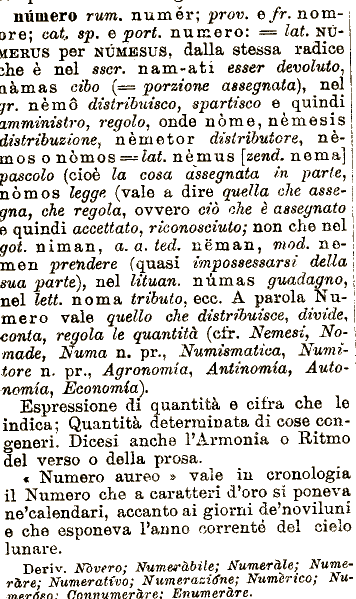 número rum. numér; prov. e fr. nom-
bre; cat. sp. e port. numero: = lat. NÚ-
MERUS per NÚMESUS, dalla stessa radice
che è nel sscr. nam-ati esser devoluto,
nàmas cibo (= porzione assegnata), nel
gr. nèmô distribuisco, spartisco e quindi
amministro, regolo, onde nòme, nèmesis
distribuzione, nèmetor distributore, nè-
mos o nòmos = lat. nèmus [zend. nema]
pascolo (cioè la cosa assegnata in parte,
nòmos legge (vale a dire quella che asse-
gna, che regola, ovvero ciò che è assegnato
e quindi accettato, riconosciuto; non che nel
got. niman, a. a. ted. nëman, mod. ne-
men prendere (quasi impossessarsi della
sua parte), nel lituan. númas guadagno,
nel lett. noma tributo, ecc. A parola Nu-
mero vale quello che distribuisce, divide,
conta, regola le quantità (cfr. Nemesi, No-
made, Numa n. pr., Numismatica, Numi-
tore n. pr., Agronomía, Antinomía, Auto-
nomía, Economía).
Espressione di quantità e cifra che le
indica; Quantità determinata di cose con-
generi. Dicesi anche l'Armonia o Ritmo
del verso o della prosa.
« Numero aureo » vale in cronologia
il Numero che a caratteri d'oro si poneva
ne'calendari, accanto ai giorni de'noviluni
e che esponeva l'anno corrente del cielo
lunare.
Deriv. Nòvero; Numeràbile; Numeràle; Nume-
ràre; Numeratívo; Numerazióne; Numèrico; Nu-
meróso; Connumeràre; Enumeràre.